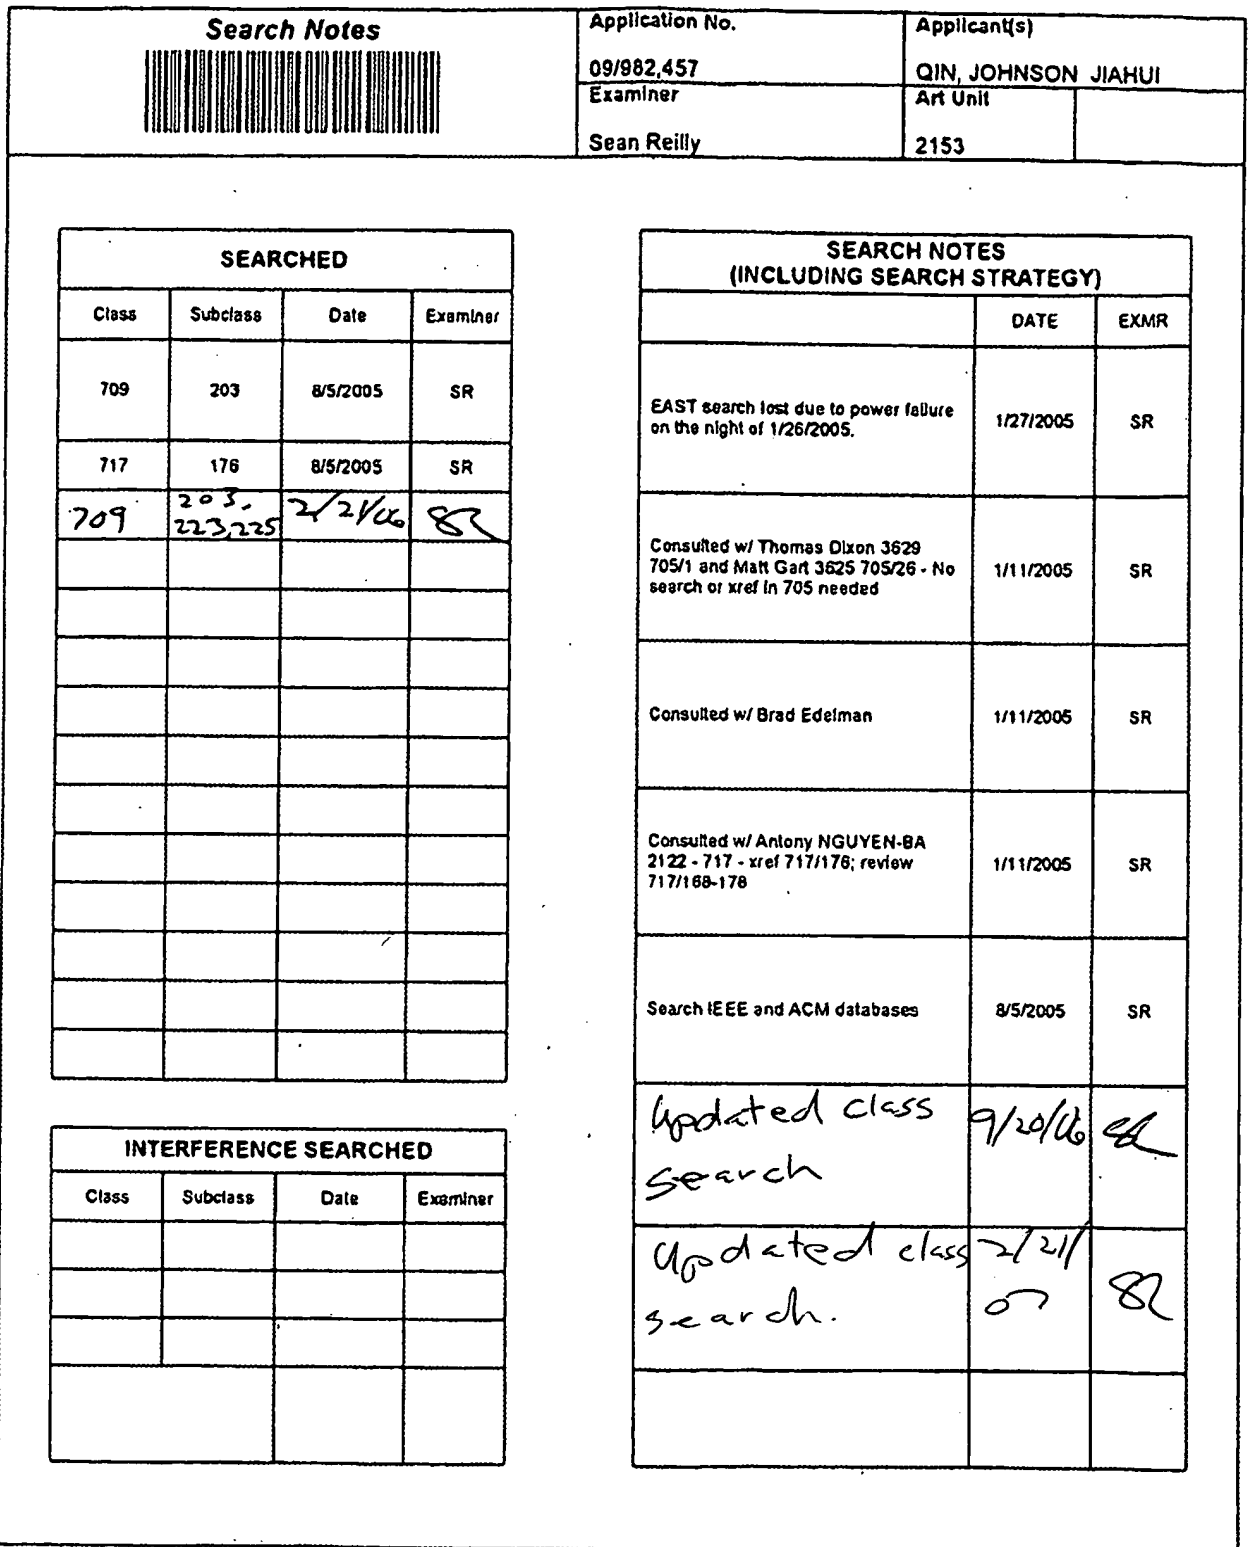 Search Notes
Application No.
09/982,457
Applicant(s)
QIN, JOHNSON JIAHUI
Examiner
Sean Reilly
Art Unit
2153
SEARCHED
Class Subclass Date Examiner
709 203 8/5/2005 SR
717 176 8/5/2005 SR
709 203, 223,225 2/21/06 SR
INTERFERENCE SEARCHED
Class Subclass Date Examiner
SEARCH NOTES
(INCLUDING SEARCH STRATEGY)
DATE EXMR
EAST search lost due to power failure
on the night of 1/26/2005.
1/27/2005 SR
Consulted w/ Thomas Dixon 3629
705/1 and Matt Gart 3625 705/26 - No
search or xref in 705 needed
1/11/2005 SR
Consulted w/ Brad Edelman 1/11/2005 SR
Consulted w/ Antony NGUYEN-BA
2122 - 717 - xref 717/176; review
717/168-178
1/11/2005 SR
Search IEEE and ACM databases 8/5/2005 SR
Updated class
search
9/20/06 SR
Updated class
search.
2/21/
07
SR